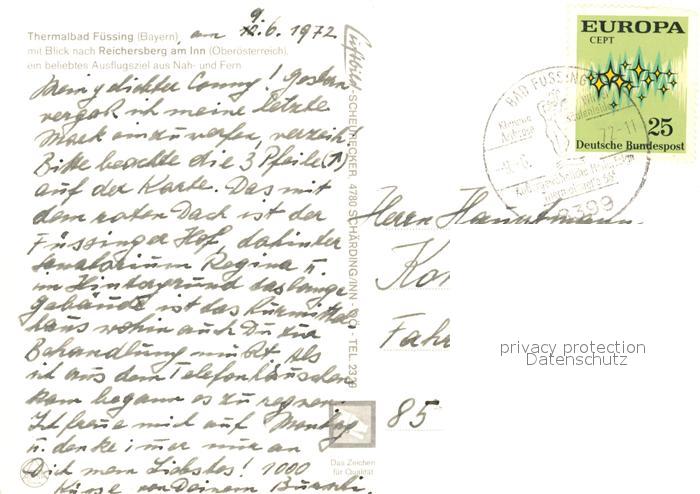 Thermalbad Füssing (Bayern), am 9.6.1972
mit Blick nach Reichersberg am Inn (Oberösterreich),
ein beliebtes Ausflugsziel aus Nah- und Fern
Conny! Gestern
vergaß ich meine letzte
Mark einzuwerfen, verzeih.
Bitte beachte die 3 Pfeile (↑)
auf der Karte. Das mit
dem roten Dach ist der
Füssinger Hof, dahinter
Sanatorium Regina u.
im Hintergrund das lange
Gebäude ist das Kurmittel-
haus wohin auch Du zur
Behandlung mußt. Als
ich aus dem Telefonhäuschen
kam begann es zu regnen.
Ich freue mich auf Montag
u. denke immer nur an
Dich mein Liebstes! 1000
Küsse von Deinem
Luftbild-SCHELHECKER 4780 SCHÄRDING/INN - TEL.
Das Zeichen
für Qualität
EUROPA
CEPT
25
Deutsche Bundespost
BAD FÜSSING
72-11
8399
Herrn
85
privacy protection
Datenschutz